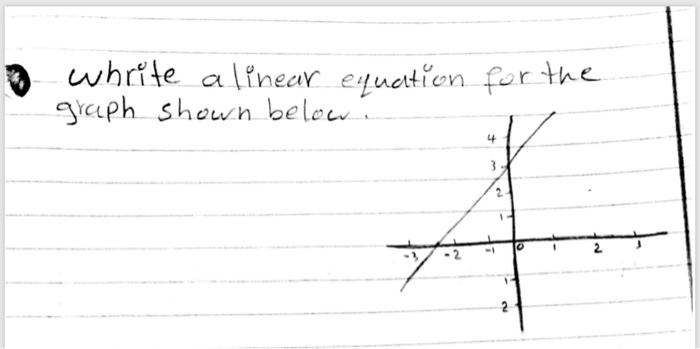 whrite a linear equation for the
graph shown below.
4
3
2
1
-3 -2 -1 0 1 2 3
1
2